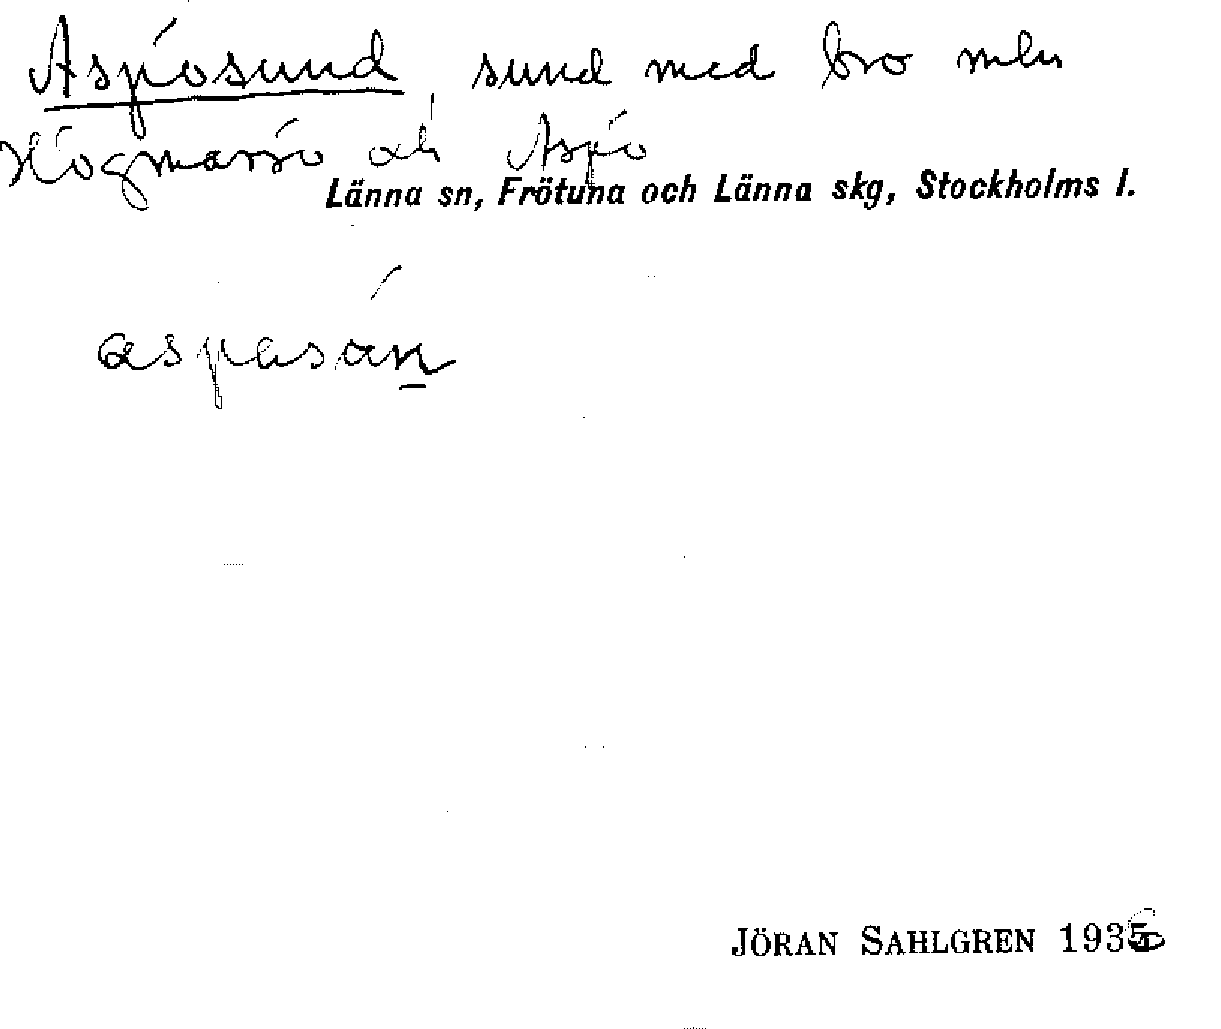 Aspösund, sund med bro mln
Högmarsö och Aspö
Länna sn, Frötuna och Länna skg, Stockholms l.
aspasán
JÖRAN SAHLGREN 1936